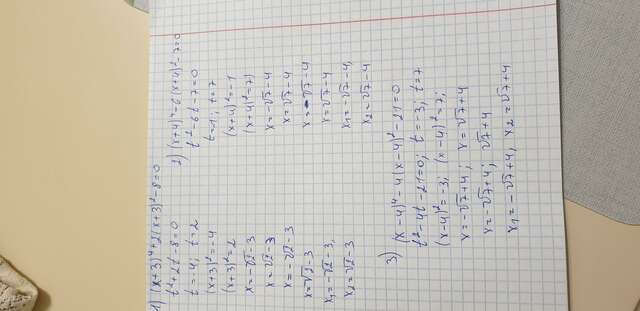 1) (x+3)⁴+2(x+3)²-8=0
t²+2t-8=0
t=-4; t=2
(x+3)²=-4
(x+3)²=2
x=-√2-3
x=√2-3
x=-√2-3
x=√2-3
x₁=-√2-3,
x₂=√2-3
2) (x+4)⁴-6(x+4)²-7=0
t²-6t-7=0
t=-1; t=7
(x+4)²=-1
(x+4)²=7
x=-√7-4
x=√7-4
x=-√7-4
x=√7-4
x₁=-√7-4,
x₂=√7-4
3) (x-4)⁴-4(x-4)²-21=0
t²-4t-21=0; t=-3; t=7
(x-4)²=-3; (x-4)²=7;
x=-√7+4; x=√7+4
x=-√7+4; √7+4
x₁=-√7+4, x₂=√7+4